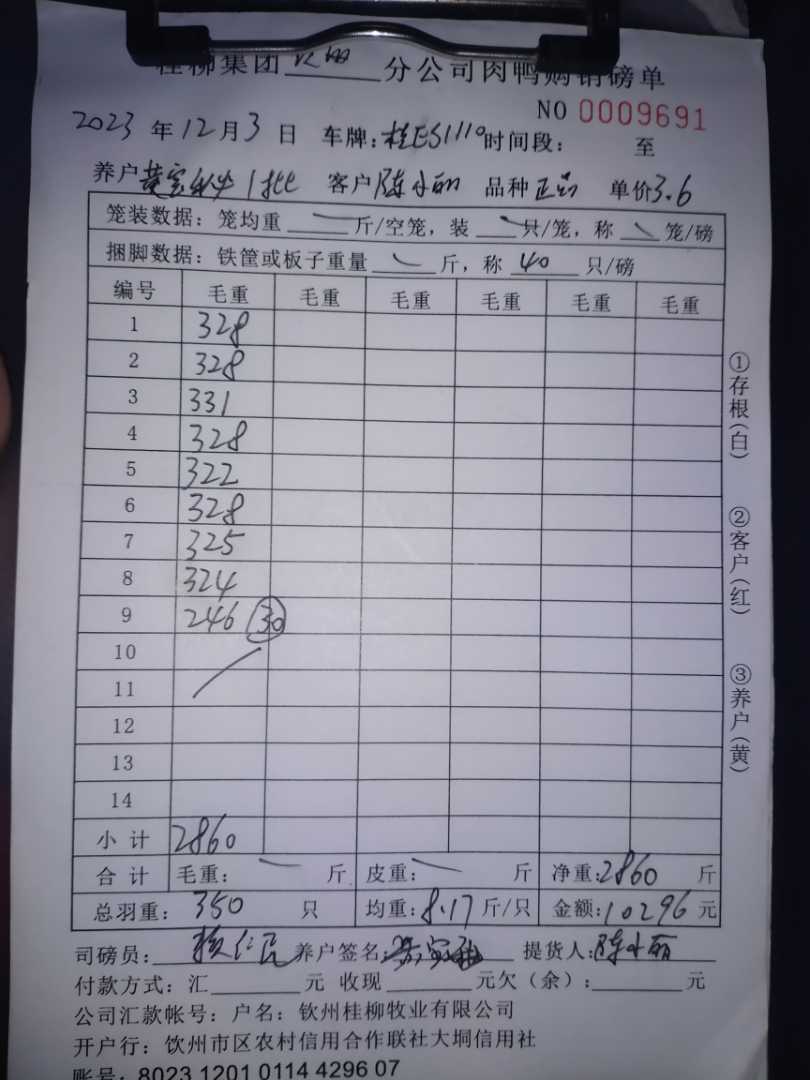 桂柳集团 分公司肉鸭购销磅单
NO 0009691
2023年12月3日 车牌:桂ES1110 时间段: 至
养户 黄 1批 客户 陈小丽 品种 正品 单价 3.6
笼装数据：笼均重 斤/空笼，装 只/笼，称 笼/磅
捆脚数据：铁筐或板子重量 斤，称 40 只/磅
编号 毛重 毛重 毛重 毛重 毛重 毛重
1 328
2 328
3 331
4 328
5 322
6 328
7 325
8 324
9 246 30
10
11
12
13
14
小计 2860
合计 毛重: 斤 皮重: 斤 净重:2860 斤
总羽重: 350 只 均重:8.17 斤/只 金额:10296 元
司磅员: 养户签名: 提货人:陈小丽
付款方式: 汇 元 收现 元欠（余）: 元
公司汇款帐号: 户名: 钦州桂柳牧业有限公司
开户行: 钦州市区农村信用合作联社大垌信用社
账号: 8023 1201 0114 4296 07
①存根(白)
②客户(红)
③养户(黄)